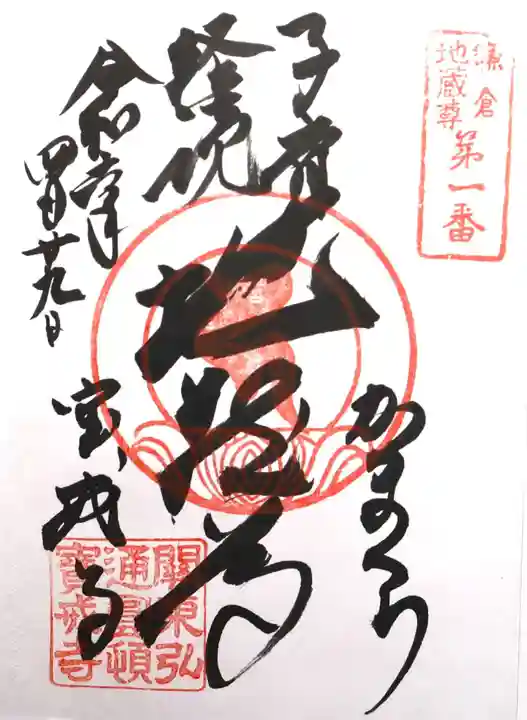 鎌倉
地蔵尊
第一番
子育
経読
地蔵尊
かまくら
令和
四月廿九日
宝戒寺
關東弘
通圓頓
寶戒寺